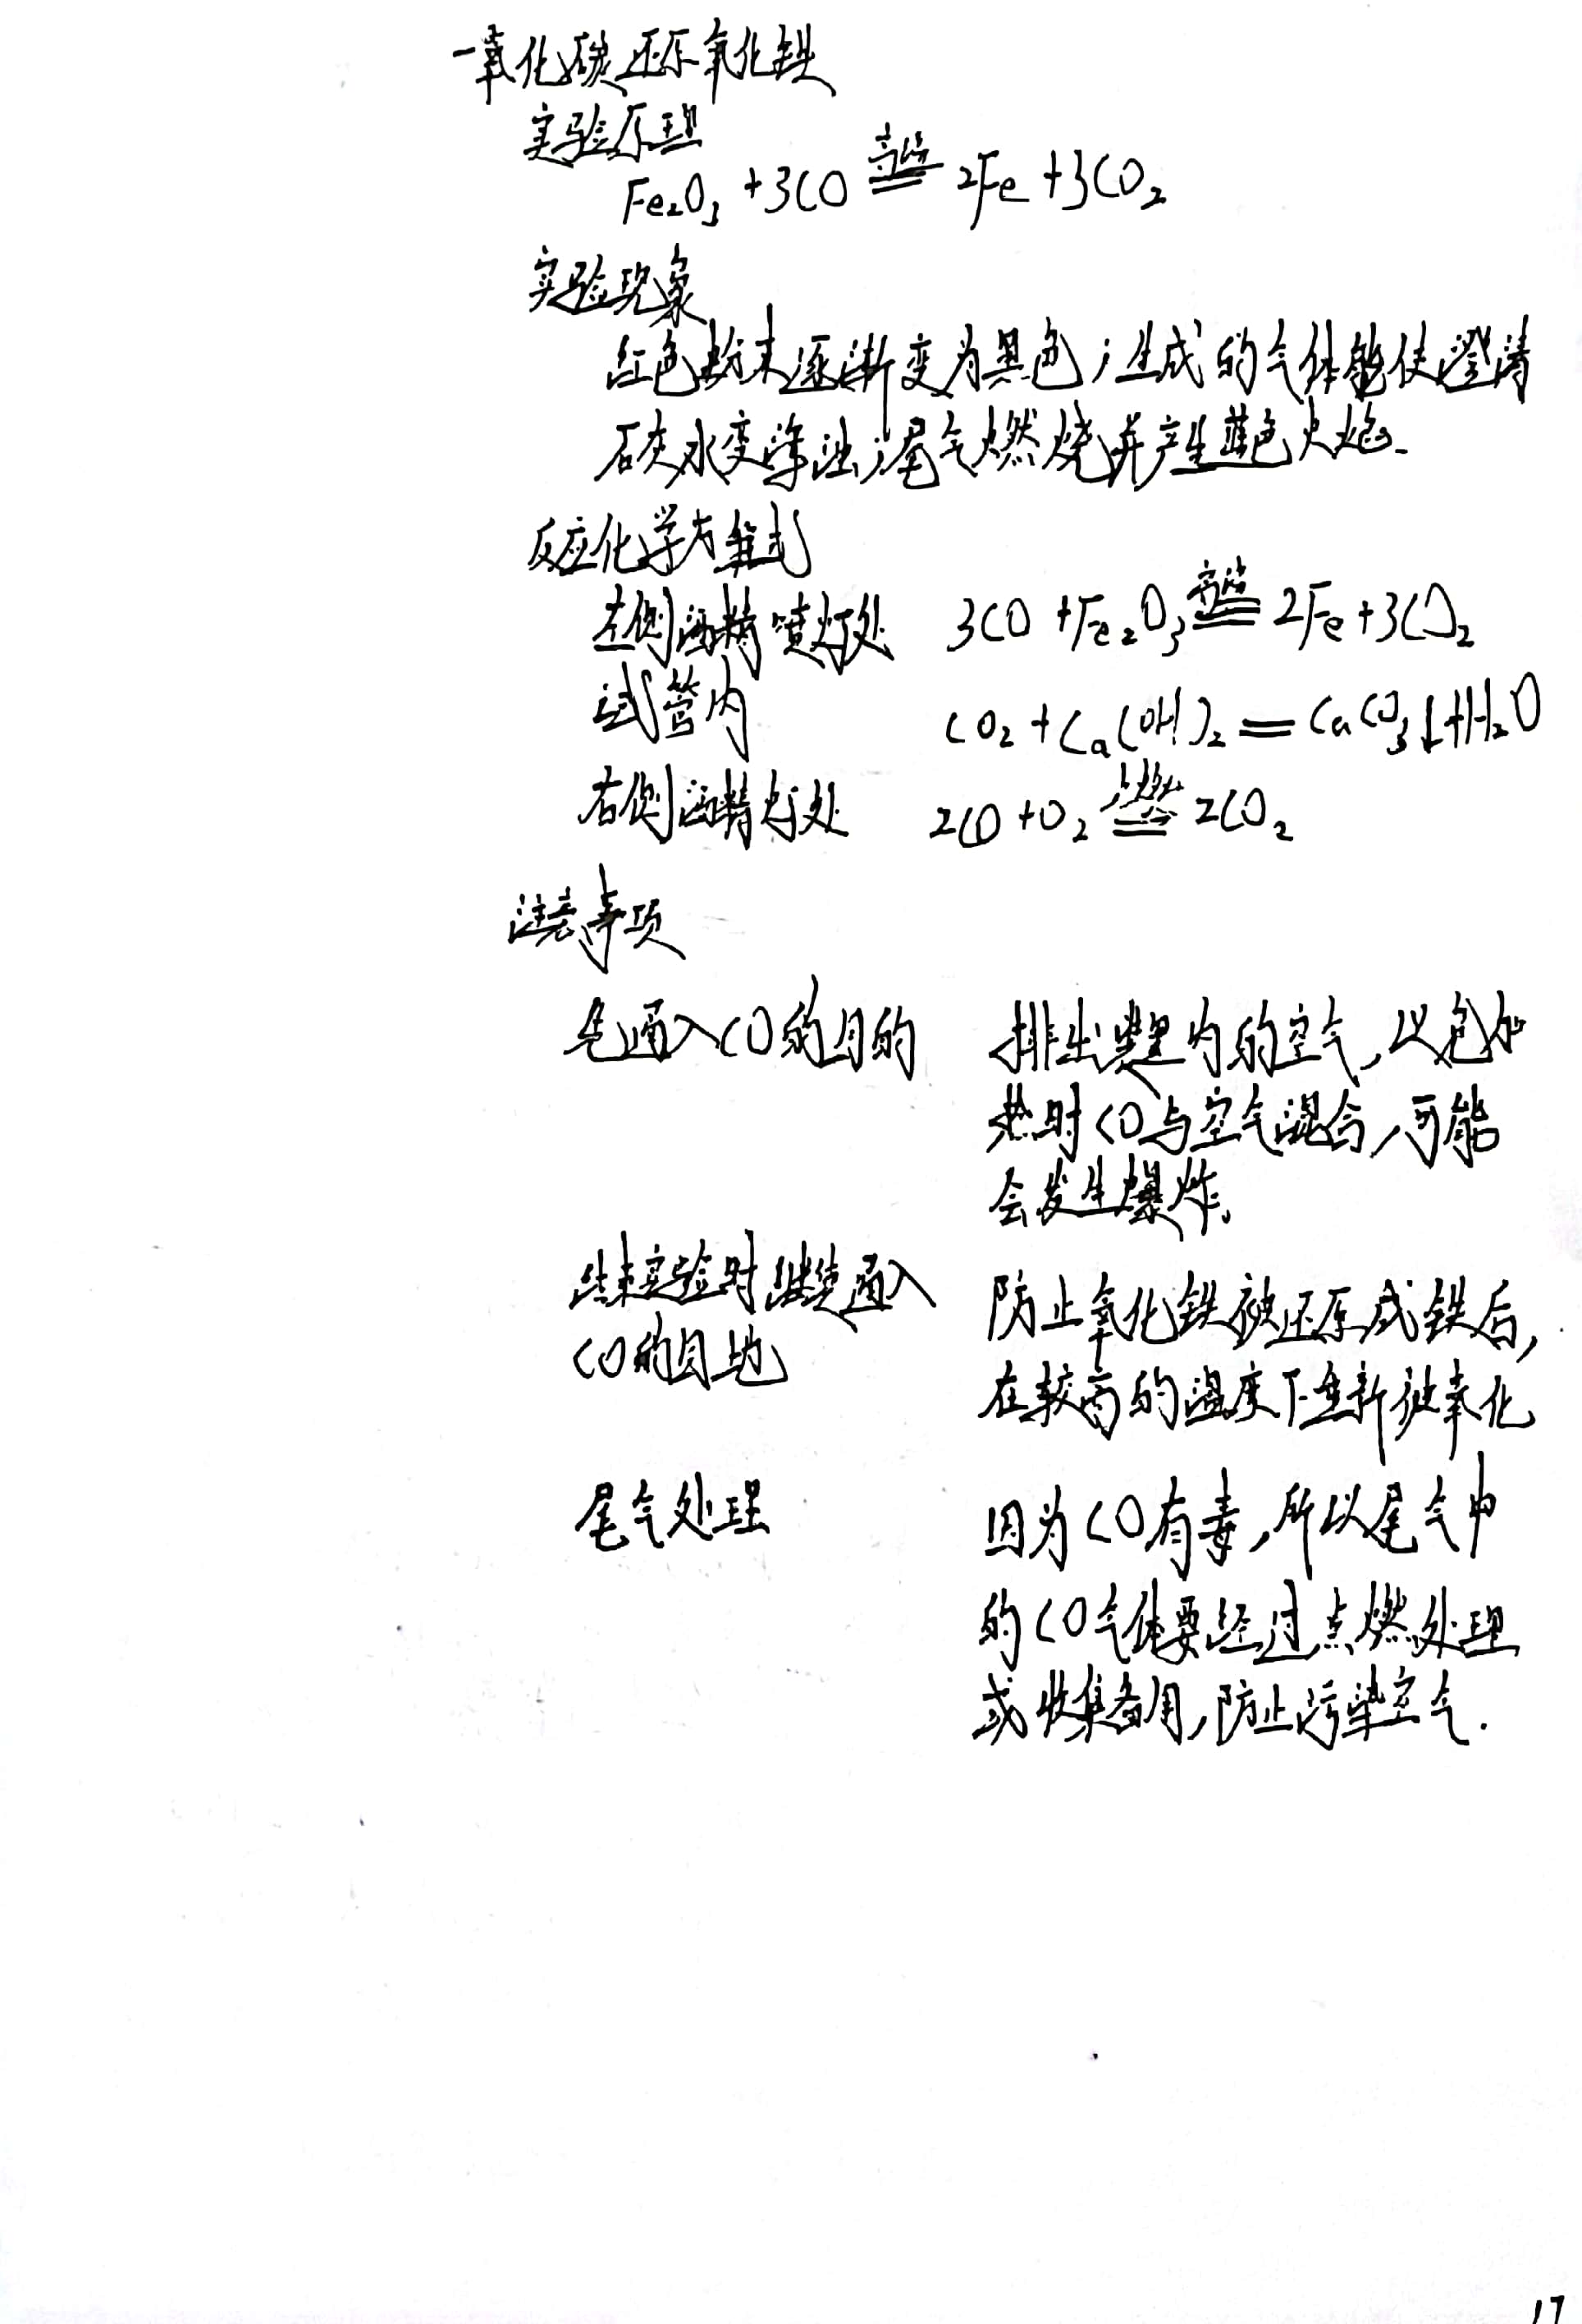 一氧化碳还原氧化铁
实验原理
Fe₂O₃ + 3CO 高温 2Fe + 3CO₂
实验现象
红色粉末逐渐变为黑色；生成的气体能使澄清
石灰水变浑浊；尾气燃烧并产生蓝色火焰.
反应化学方程式
左侧酒精喷灯处 3CO + Fe₂O₃ 高温 2Fe + 3CO₂
试管内 CO₂ + Ca(OH)₂ = CaCO₃↓ + H₂O
右侧酒精灯处 2CO + O₂ 点燃 2CO₂
注意事项
先通入CO的目的 排出装置内的空气,以免加
热时CO与空气混合,可能
会发生爆炸。
结束实验时继续通入 防止氧化铁被还原成铁后,
CO的目地 在较高的温度下重新被氧化
尾气处理 因为CO有毒,所以尾气中
的CO气体要经过点燃处理
或收集备用,防止污染空气.
17